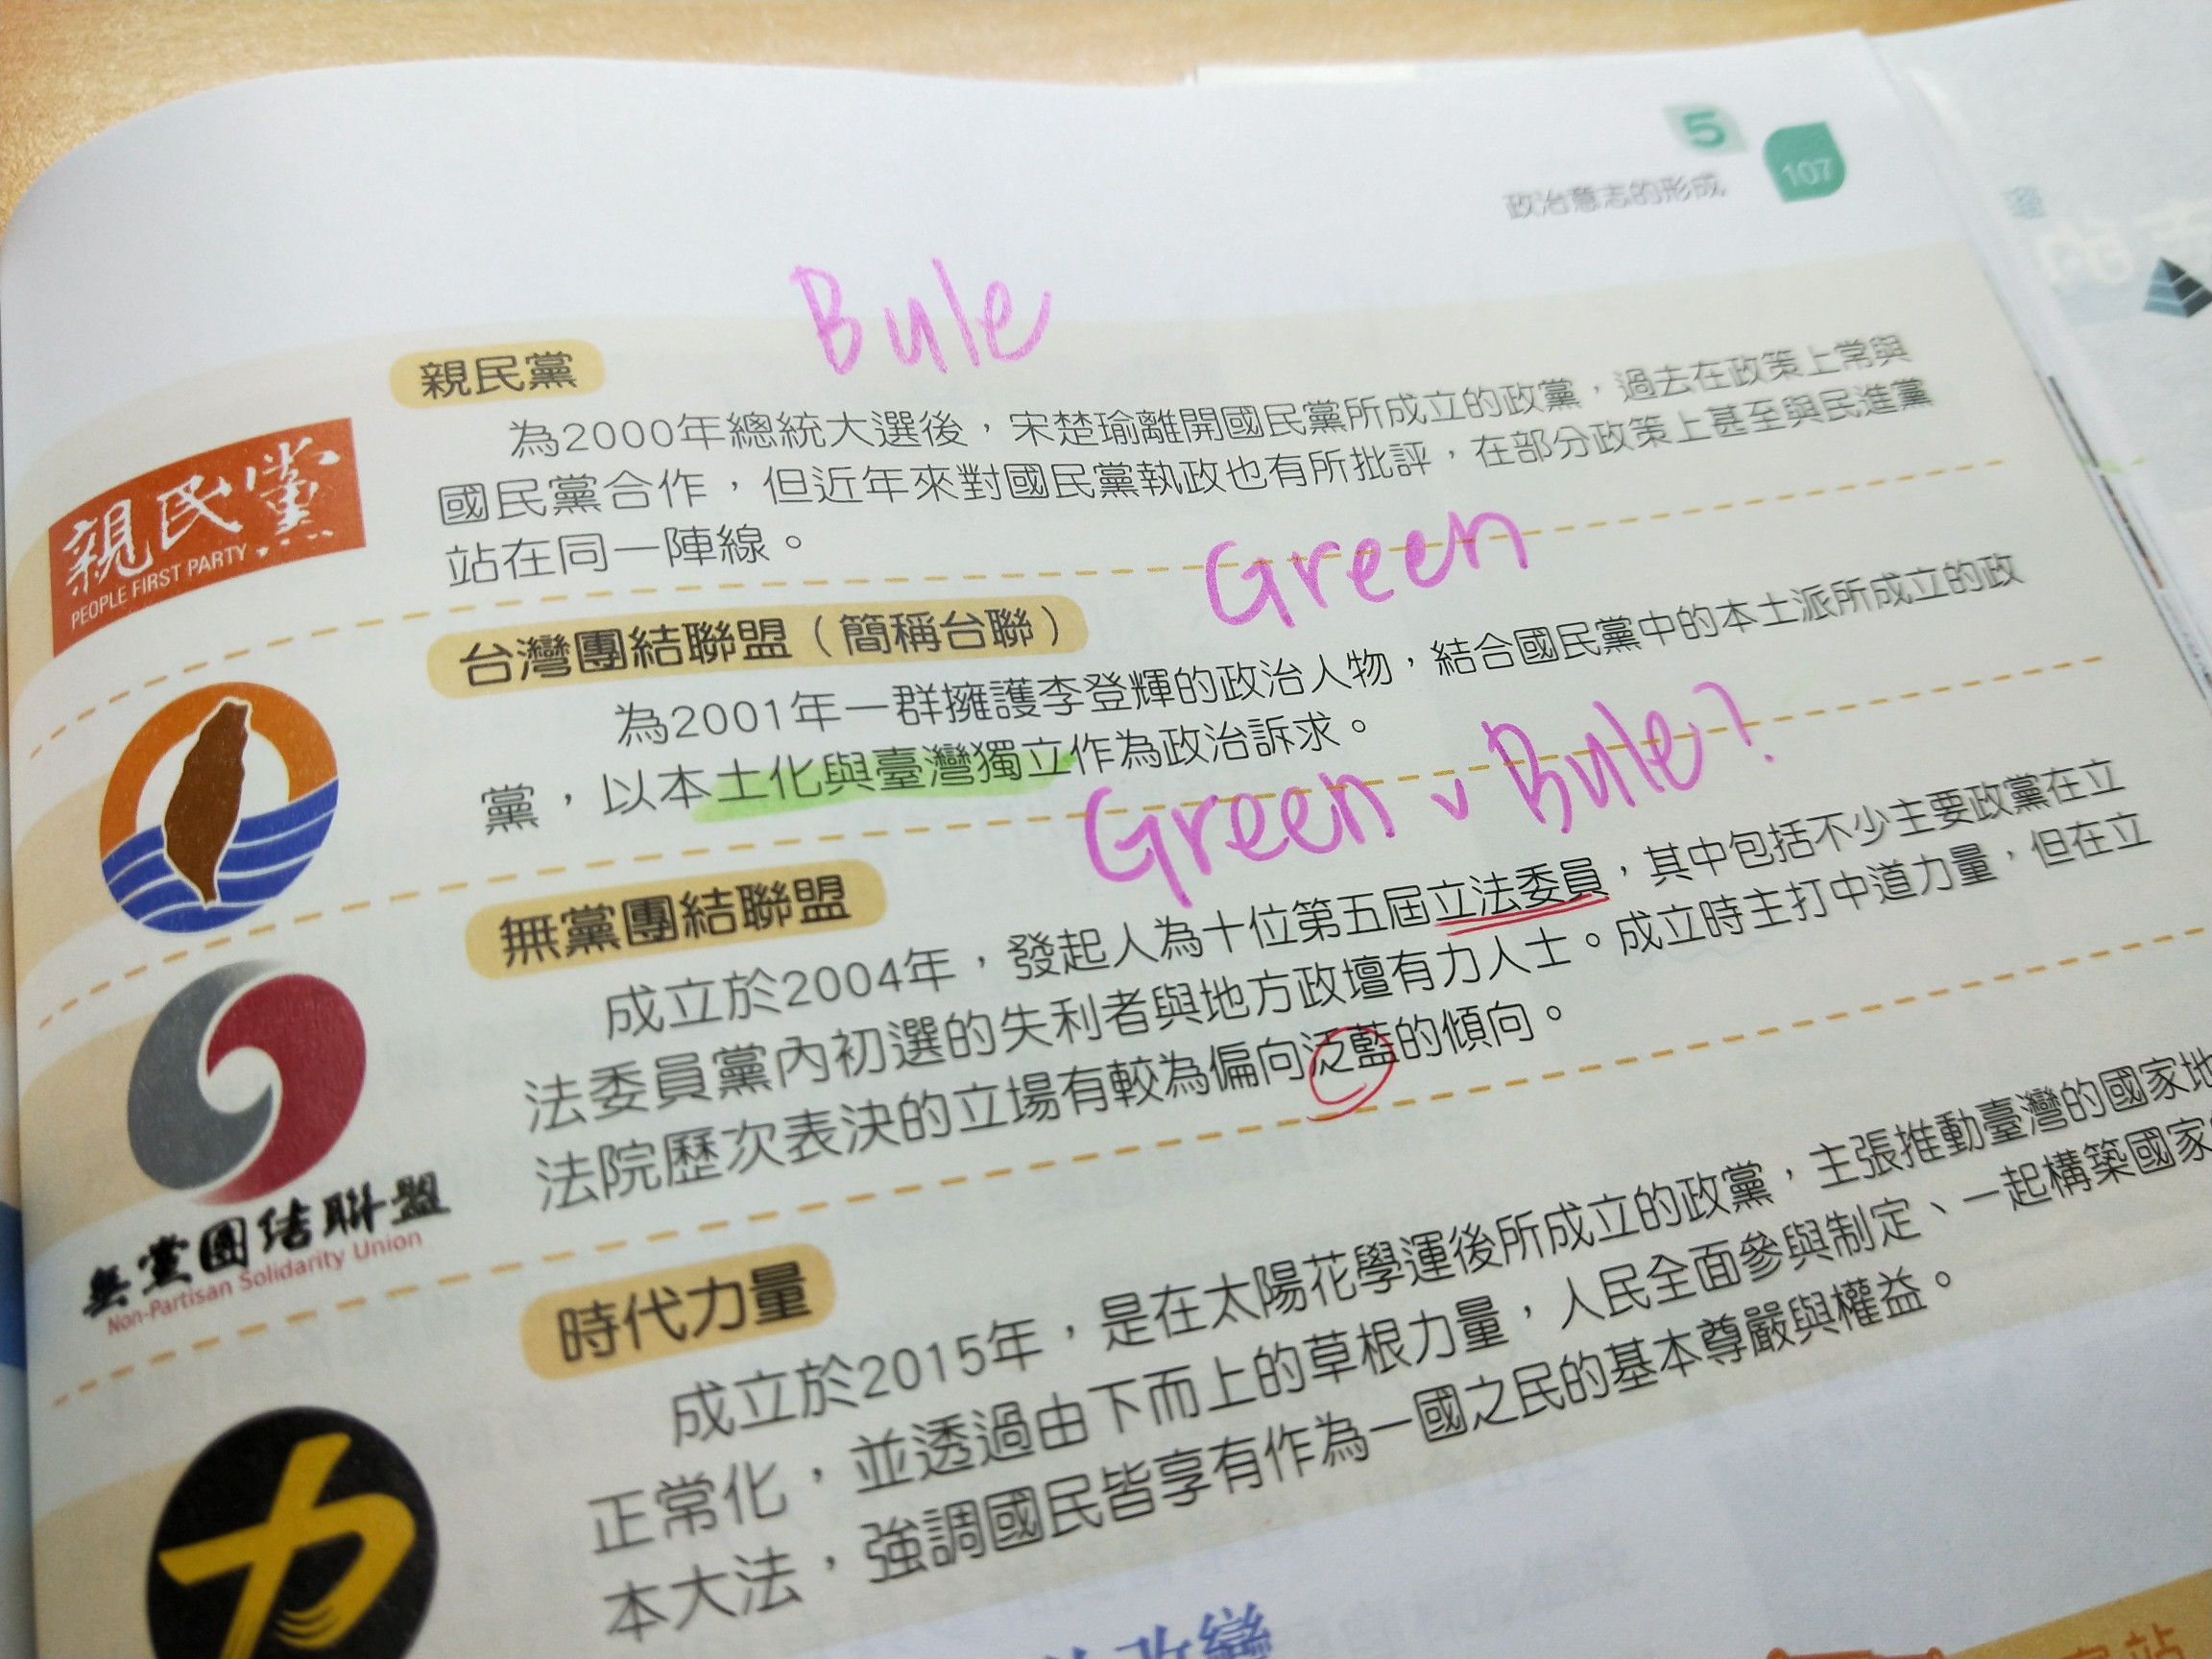 5
政治意志的形成 107
Bule
親民黨
親民黨
PEOPLE FIRST PARTY
為2000年總統大選後，宋楚瑜離開國民黨所成立的政黨，過去在政策上常與
國民黨合作，但近年來對國民黨執政也有所批評，在部分政策上甚至與民進黨
站在同一陣線。
Green
台灣團結聯盟（簡稱台聯）
為2001年一群擁護李登輝的政治人物，結合國民黨中的本土派所成立的政
黨，以本土化與臺灣獨立作為政治訴求。
Green v Bule?
無黨團結聯盟
成立於2004年，發起人為十位第五屆立法委員，其中包括不少主要政黨在立
法委員黨內初選的失利者與地方政壇有力人士。成立時主打中道力量，但在立
法院歷次表決的立場有較為偏向泛藍的傾向。
無黨團結聯盟
Non-Partisan Solidarity Union
時代力量
成立於2015年，是在太陽花學運後所成立的政黨，主張推動臺灣的國家地
正常化，並透過由下而上的草根力量，人民全面參與制定、一起構築國家
本大法，強調國民皆享有作為一國之民的基本尊嚴與權益。
力
改變
站